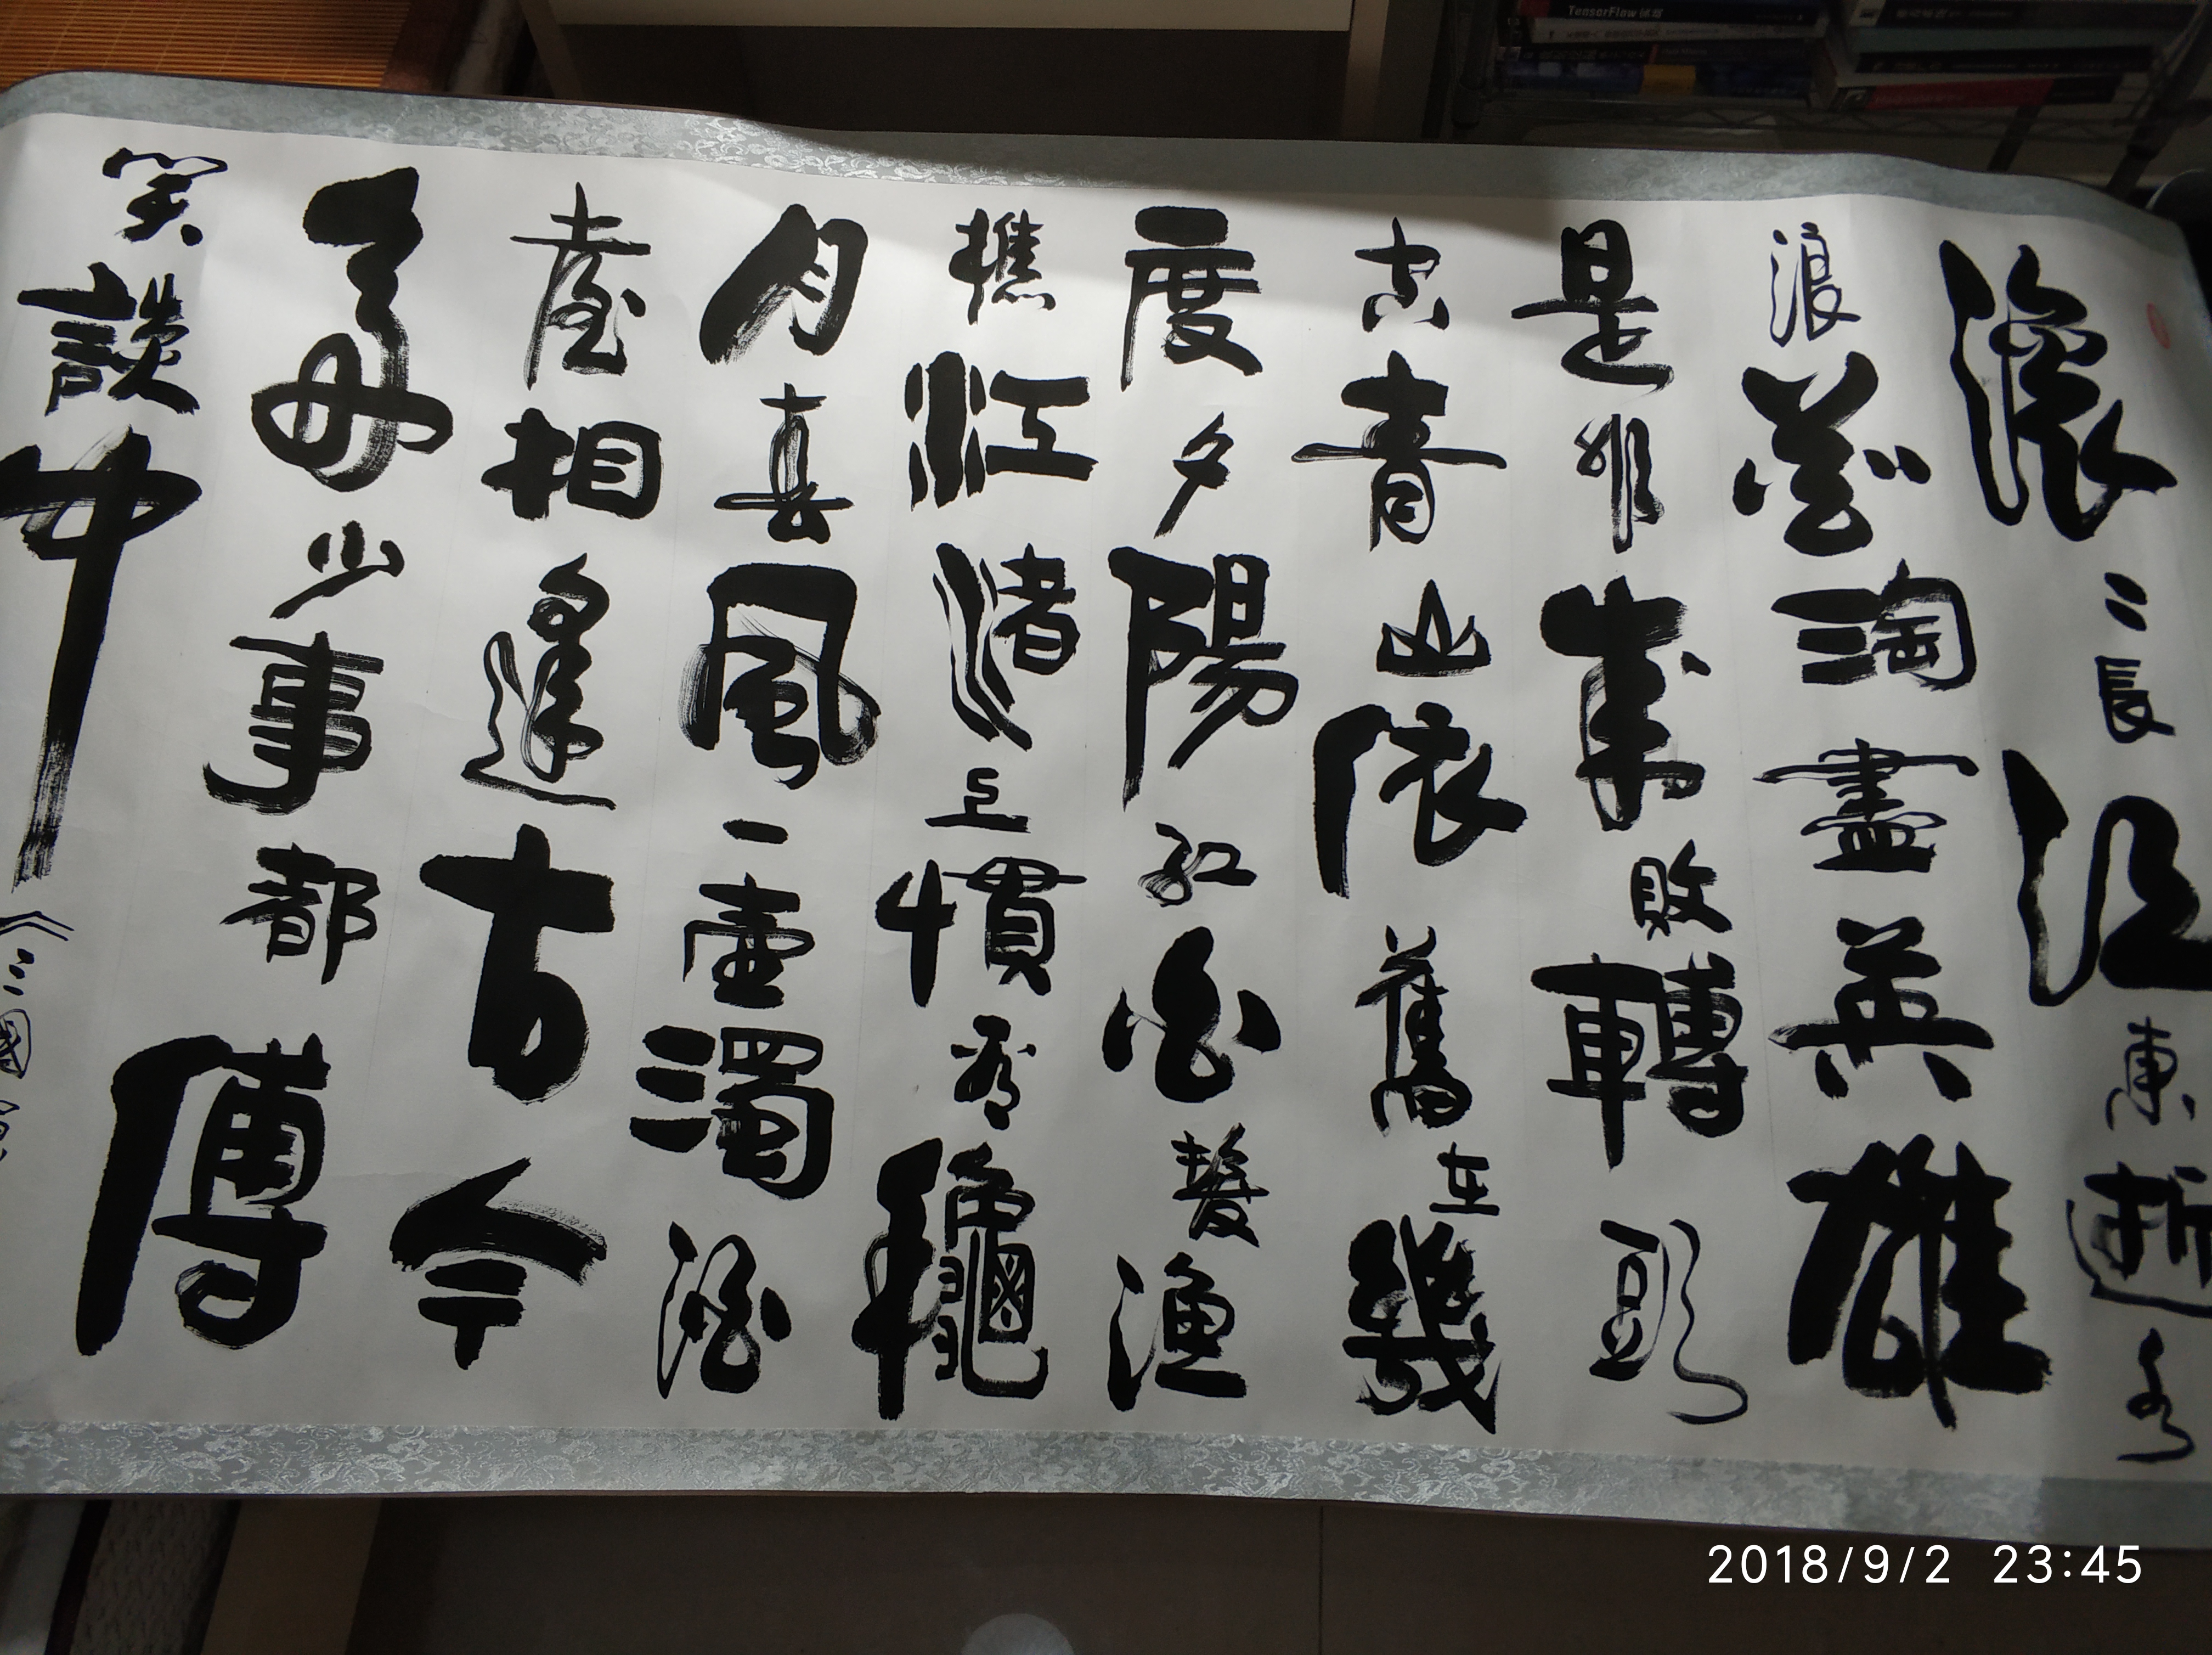 滾〻長江東逝水
浪花淘盡英雄
是非成敗轉頭
空青山依舊在幾
度夕陽紅白髮漁
樵江渚上慣看龝
月春風一壺濁酒
喜相逢古今
多少事都傅
笑談中《三國
TensorFlow 实战
2018/9/2 23:45